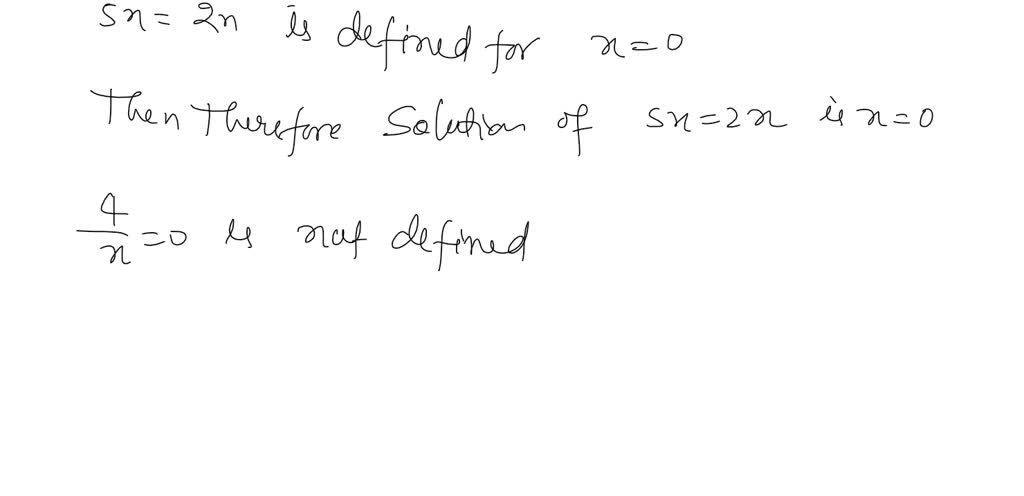 5x = 2x is defined for x=0
Then Therefore Solution of 5x=2x is x=0
4/x =0 is not defined